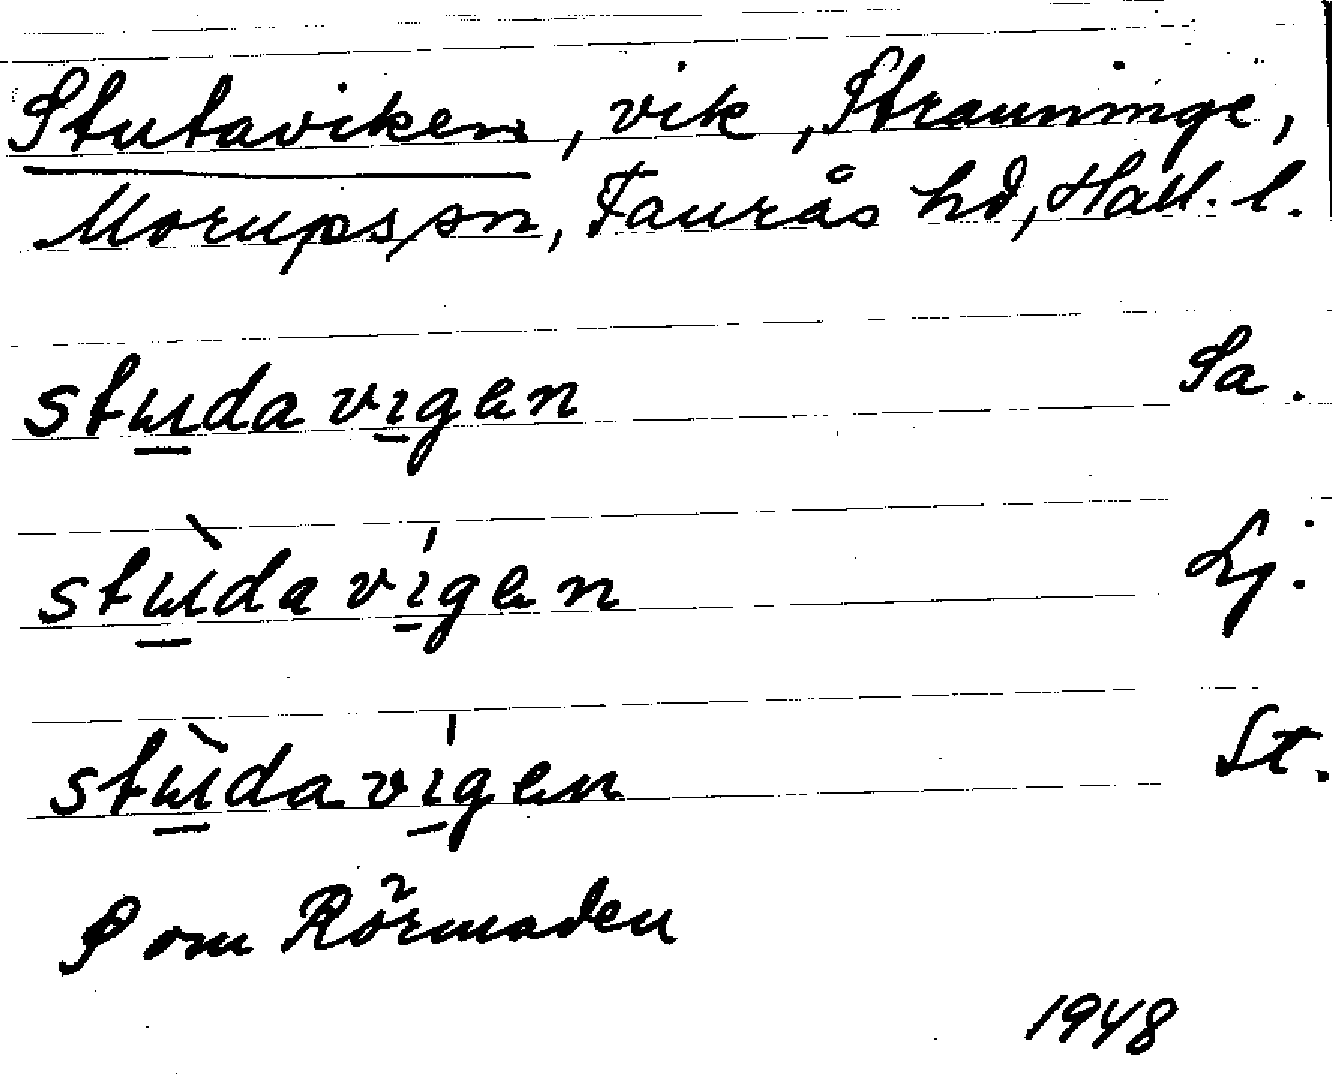 Stutaviken, vik, Strauninge,
Morups sn, Faurås hd, Hall. l.
stɯda vıgen Sa.
stɯ̀da vı́gen Lj.
stɯ̀da vı́gen St.
S om Rörmaden
1948